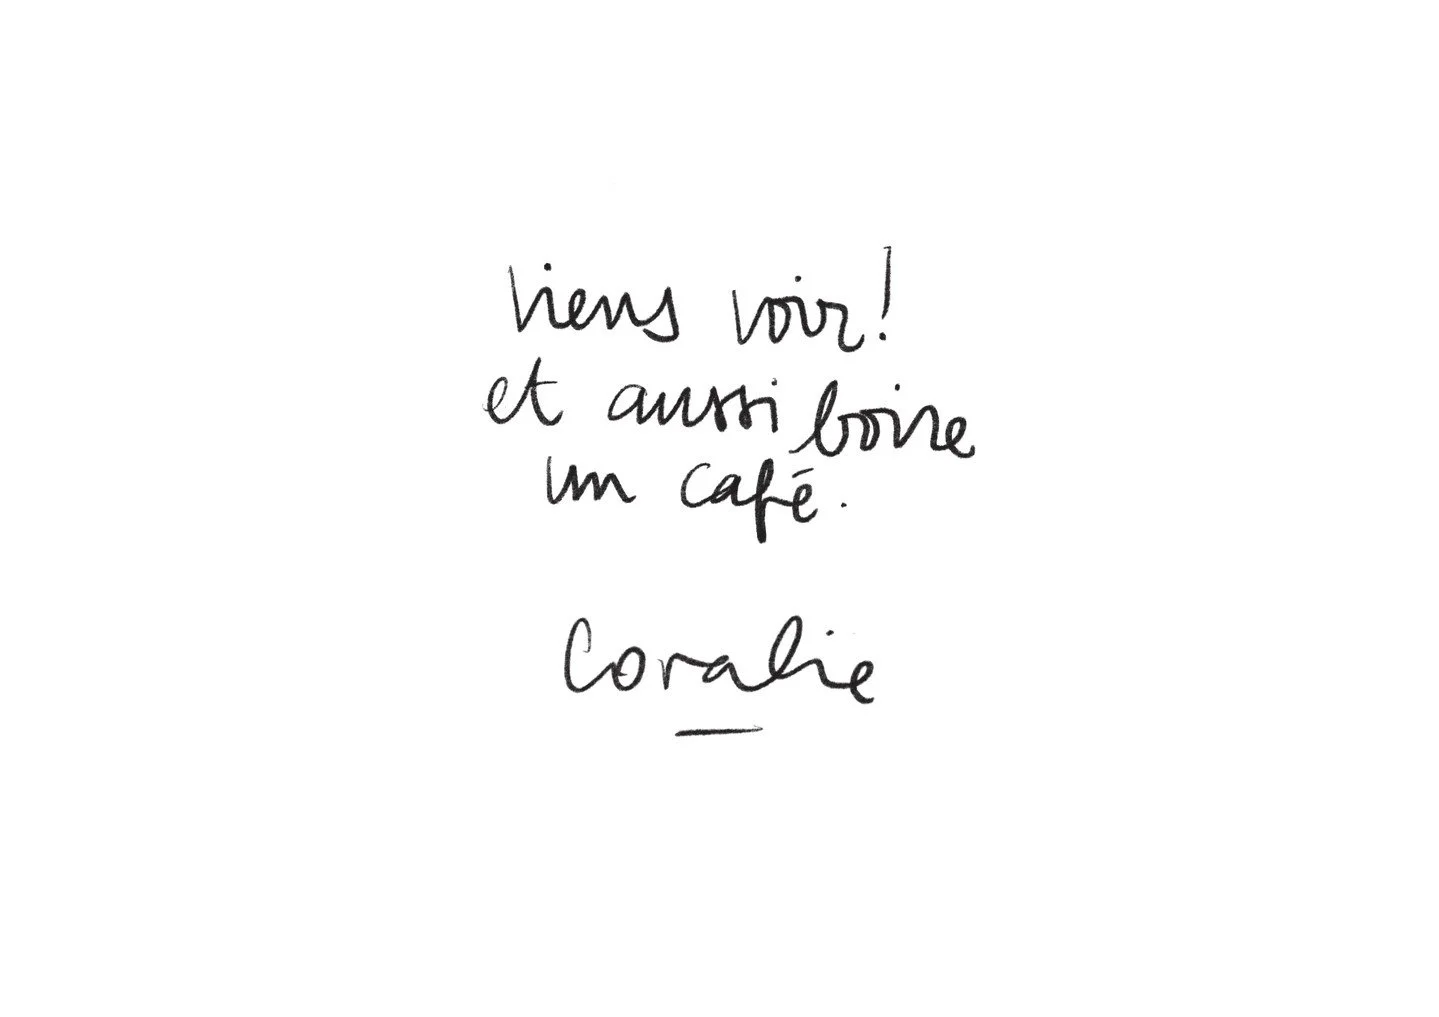 viens voir !
et aussi boire
un café.
Coralie